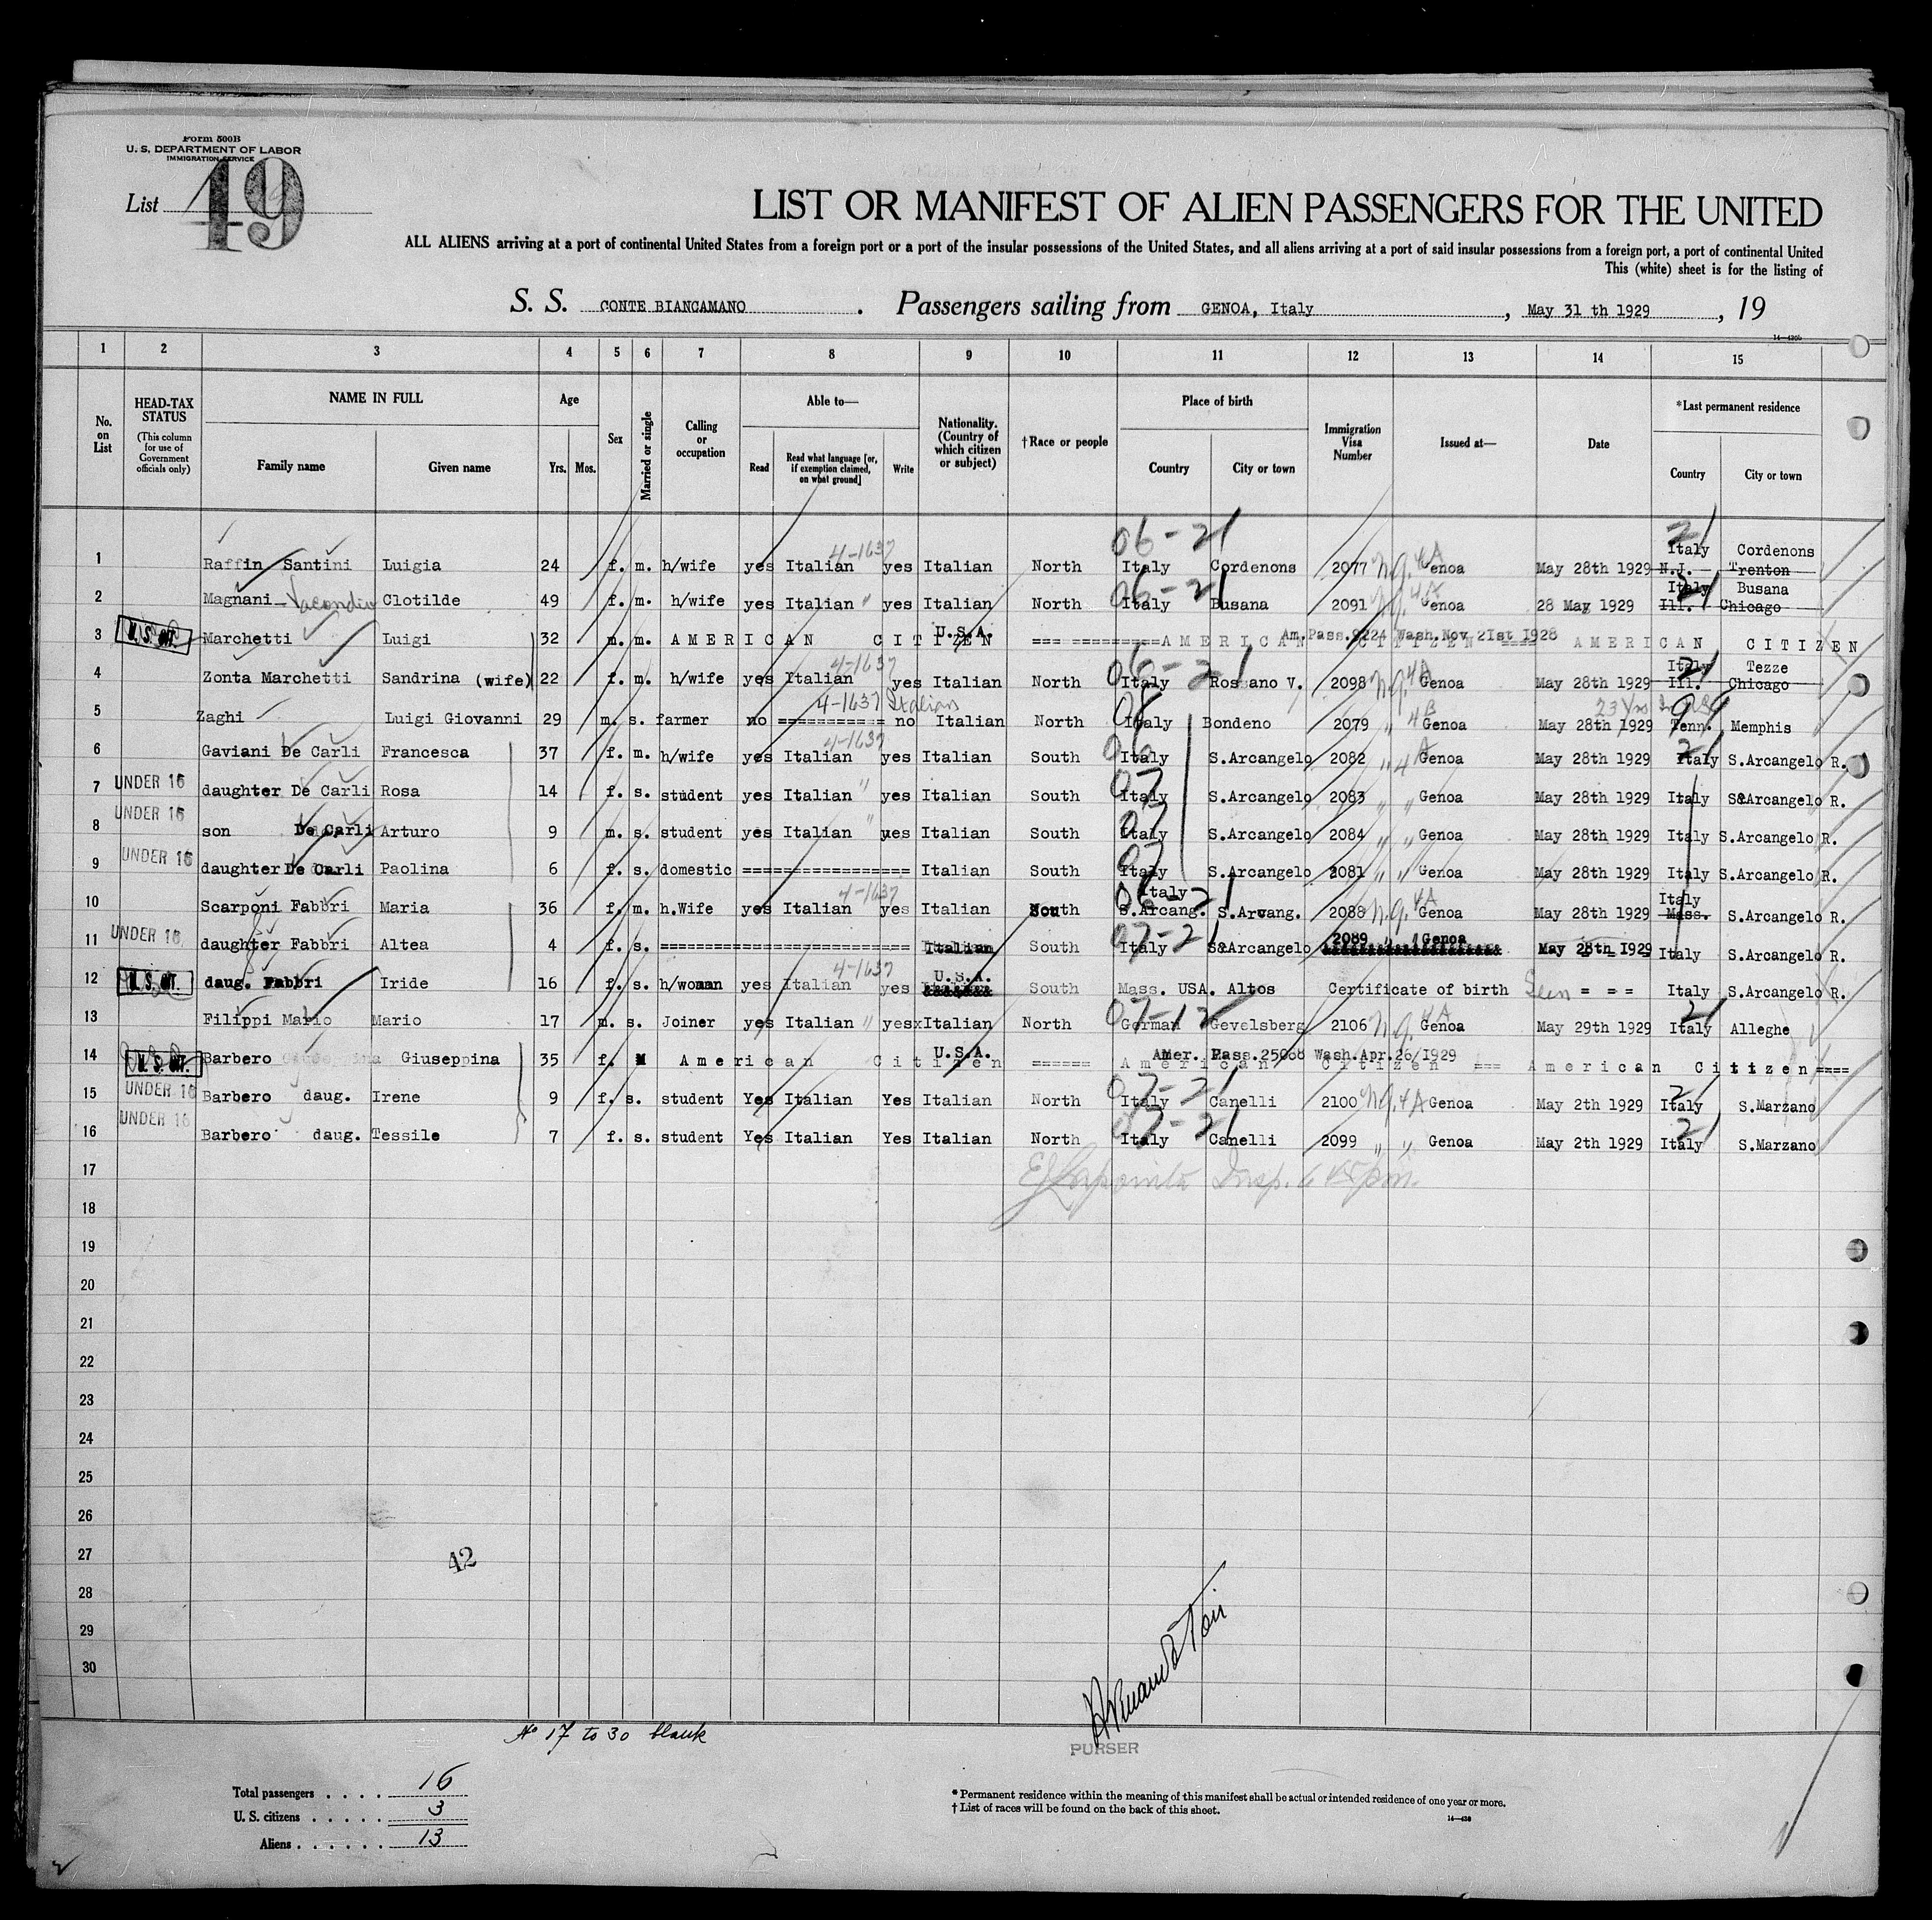 Form 500B
U. S. DEPARTMENT OF LABOR
IMMIGRATION SERVICE
List 49
LIST OR MANIFEST OF ALIEN PASSENGERS FOR THE UNITED
ALL ALIENS arriving at a port of continental United States from a foreign port or a port of the insular possessions of the United States, and all aliens arriving at a port of said insular possessions from a foreign port, a port of continental United
This (white) sheet is for the listing of
S. S. CONTE BIANCAMANO . Passengers sailing from GENOA, Italy , May 31 th 1929 , 19
14—430b
1 2 3 4 5 6 7 8 9 10 11 12 13 14 15
No. on List
HEAD-TAX STATUS (This column for use of Government officials only)
NAME IN FULL
Family name Given name
Age
Yrs. Mos.
Sex
Married or single
Calling or occupation
Able to—
Read Read what language [or, if exemption claimed, on what ground] Write
Nationality. (Country of which citizen or subject)
†Race or people
Place of birth
Country City or town
Immigration Visa Number
Issued at—
Date
*Last permanent residence
Country City or town
06-21 21
4-1637 Italy Cordenons
1 Raffin Santini Luigia 24 f. m. h/wife yes Italian yes Italian North Italy Cordenons 2077 n.q. 4A Genoa May 28th 1929 N.J. Trenton
06-21 Italy Busana
2 Magnani Clotilde 49 f. m. h/wife yes Italian " yes Italian North Italy Busana 2091 4A Genoa 28 May 1929 Ill. Chicago
U.S.A. Am.Pass.9224 Wash.Nov 21st 1928
3 U.S. CIT. Marchetti Luigi 32 m. m. AMERICAN CITIZEN === =========== AMERICAN CITIZEN ==== AMERICAN CITIZEN
4-1637 06-21 Italy 21 Tezze
4 Zonta Marchetti Sandrina (wife) 22 f. m. h/wife yes Italian yes Italian North Italy Rossano V. 2098 n.q. 4A Genoa May 28th 1929 Ill. Chicago
4-1637 Italian 06 99
5 Zaghi Luigi Giovanni 29 m. s. farmer no =========== no Italian North Italy Bondeno 2079 " 4B Genoa May 28th 1929 Tenn. Memphis
4-1637 06 21
6 Gaviani De Carli Francesca 37 f. m. h/wife yes Italian yes Italian South Italy S.Arcangelo 2082 " 4A Genoa May 28th 1929 Italy S.Arcangelo R.
UNDER 16 07
7 daughter De Carli Rosa 14 f. s. student yes Italian " yes Italian South Italy S.Arcangelo 2083 " " Genoa May 28th 1929 Italy S&Arcangelo R.
UNDER 16 07
8 son De Carli Arturo 9 m. s. student yes Italian " yes Italian South Italy S.Arcangelo 2084 " " Genoa May 28th 1929 Italy S.Arcangelo R.
UNDER 16 07
9 daughter De Carli Paolina 6 f. s. domestic ================= Italian South Italy S.Arcangelo 2081 " " Genoa May 28th 1929 Italy S.Arcangelo R.
4-1637 Italy 06-21 Italy
10 Scarponi Fabbri Maria 36 f. m. h.Wife yes Italian yes Italian South S.Arcang. S.Arvang. 2088 n.q. 4A Genoa May 28th 1929 Mass. S.Arcangelo R.
UNDER 16 07-21 2089 Genoa
11 daughter Fabbri Altea 4 f. s. ========================= Italian South Italy S&Arcangelo May 28th 1929 Italy S.Arcangelo R.
4-1637 U.S.A.
12 U.S. CIT. daug. Fabbri Iride 16 f. s. h/woman yes Italian yes South Mass. USA. Altos Certificate of birth Seen = = = Italy S.Arcangelo R.
07-12 21
13 Filippi Mario Mario 17 m. s. Joiner yes Italian " yesxItalian North German Gevelsberg 2106 n.q. 4A Genoa May 29th 1929 Italy Alleghe
U.S.A. Amer. Pass.25068 Wash.Apr.26/1929
14 U.S. CIT. Barbero Giuseppina 35 f. M American Citizen ====== American Citizen === American Citizen ====
UNDER 16 07-21 21
15 Barbero daug. Irene 9 f. s. student Yes Italian Yes Italian North Italy Canelli 2100 n.q. 4A Genoa May 2th 1929 Italy S.Marzano
UNDER 16 07-21 21
16 Barbero daug. Tessile 7 f. s. student Yes Italian Yes Italian North Italy Canelli 2099 " " Genoa May 2th 1929 Italy S.Marzano
17 Insp.
18
19
20
21
22
23
24
25
26
27 42
28
29
30
No 17 to 30 blank
PURSER
Total passengers . . . . 16
U. S. citizens . . . . . 3
Aliens . . . . . . 13
* Permanent residence within the meaning of this manifest shall be actual or intended residence of one year or more.
† List of races will be found on the back of this sheet.
14—430